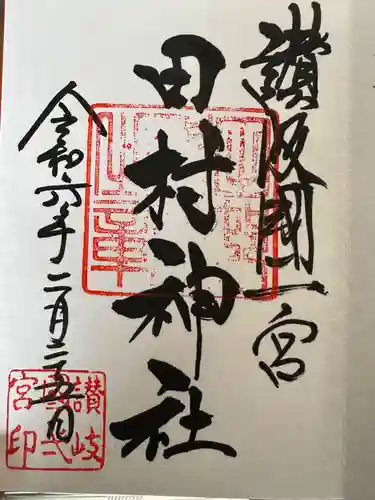 讃岐國一宮
田村神社
令和六年二月二五日
讃岐
宮印